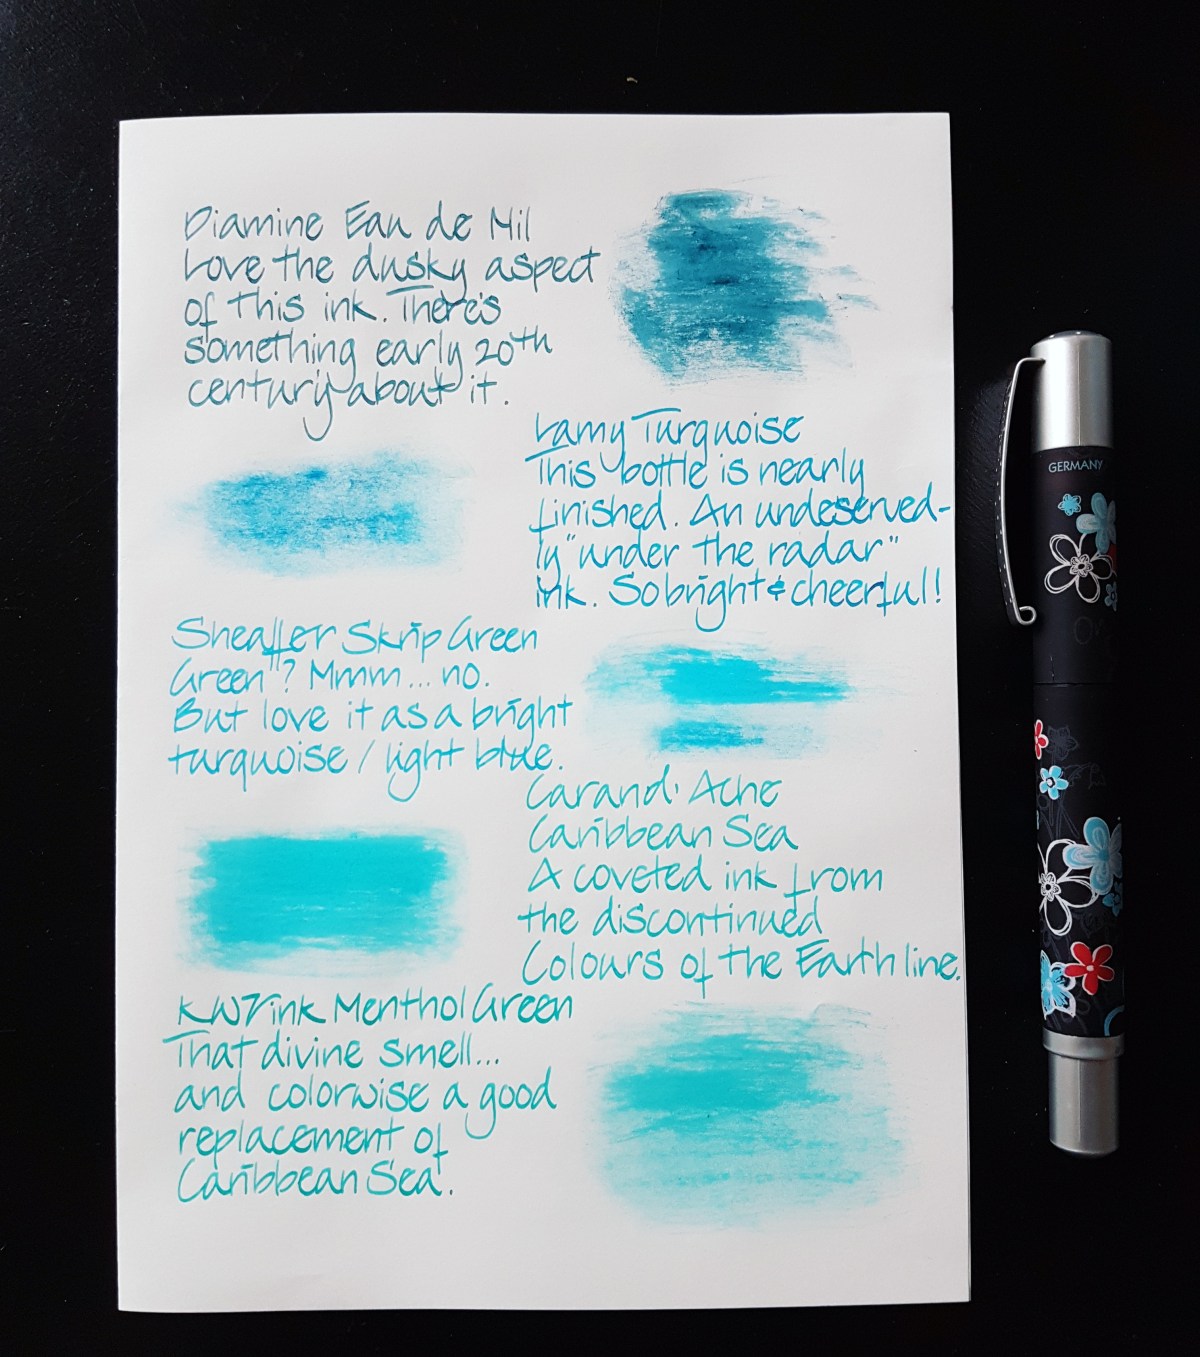 Diamine Eau de Nil
Love the dusky aspect
of this ink. There's
something early 20th
century about it.
Lamy Turquoise
This bottle is nearly
finished. An undeserved-
ly "under the radar"
ink. So bright & cheerful!
Sheaffer Skrip Green
Green"? Mmm... no.
But love it as a bright
turquoise / light blue.
Carand'Ache
Caribbean Sea
A coveted ink from
the discontinued
Colours of the Earth line.
KWZ ink Menthol Green
That divine smell...
and colorwise a good
replacement of
Caribbean Sea.
GERMANY